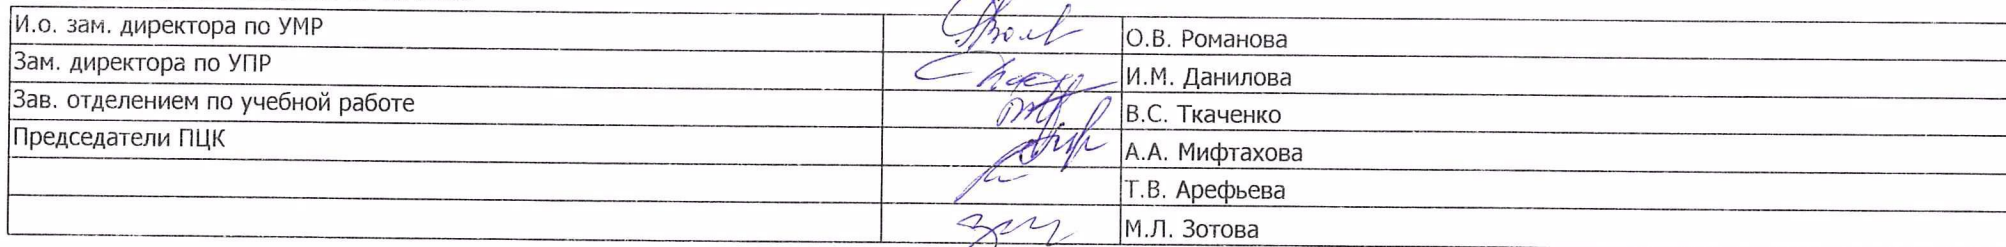 И.о. зам. директора по УМР О.В. Романова
Зам. директора по УПР И.М. Данилова
Зав. отделением по учебной работе В.С. Ткаченко
Председатели ПЦК А.А. Мифтахова
Т.В. Арефьева
М.Л. Зотова